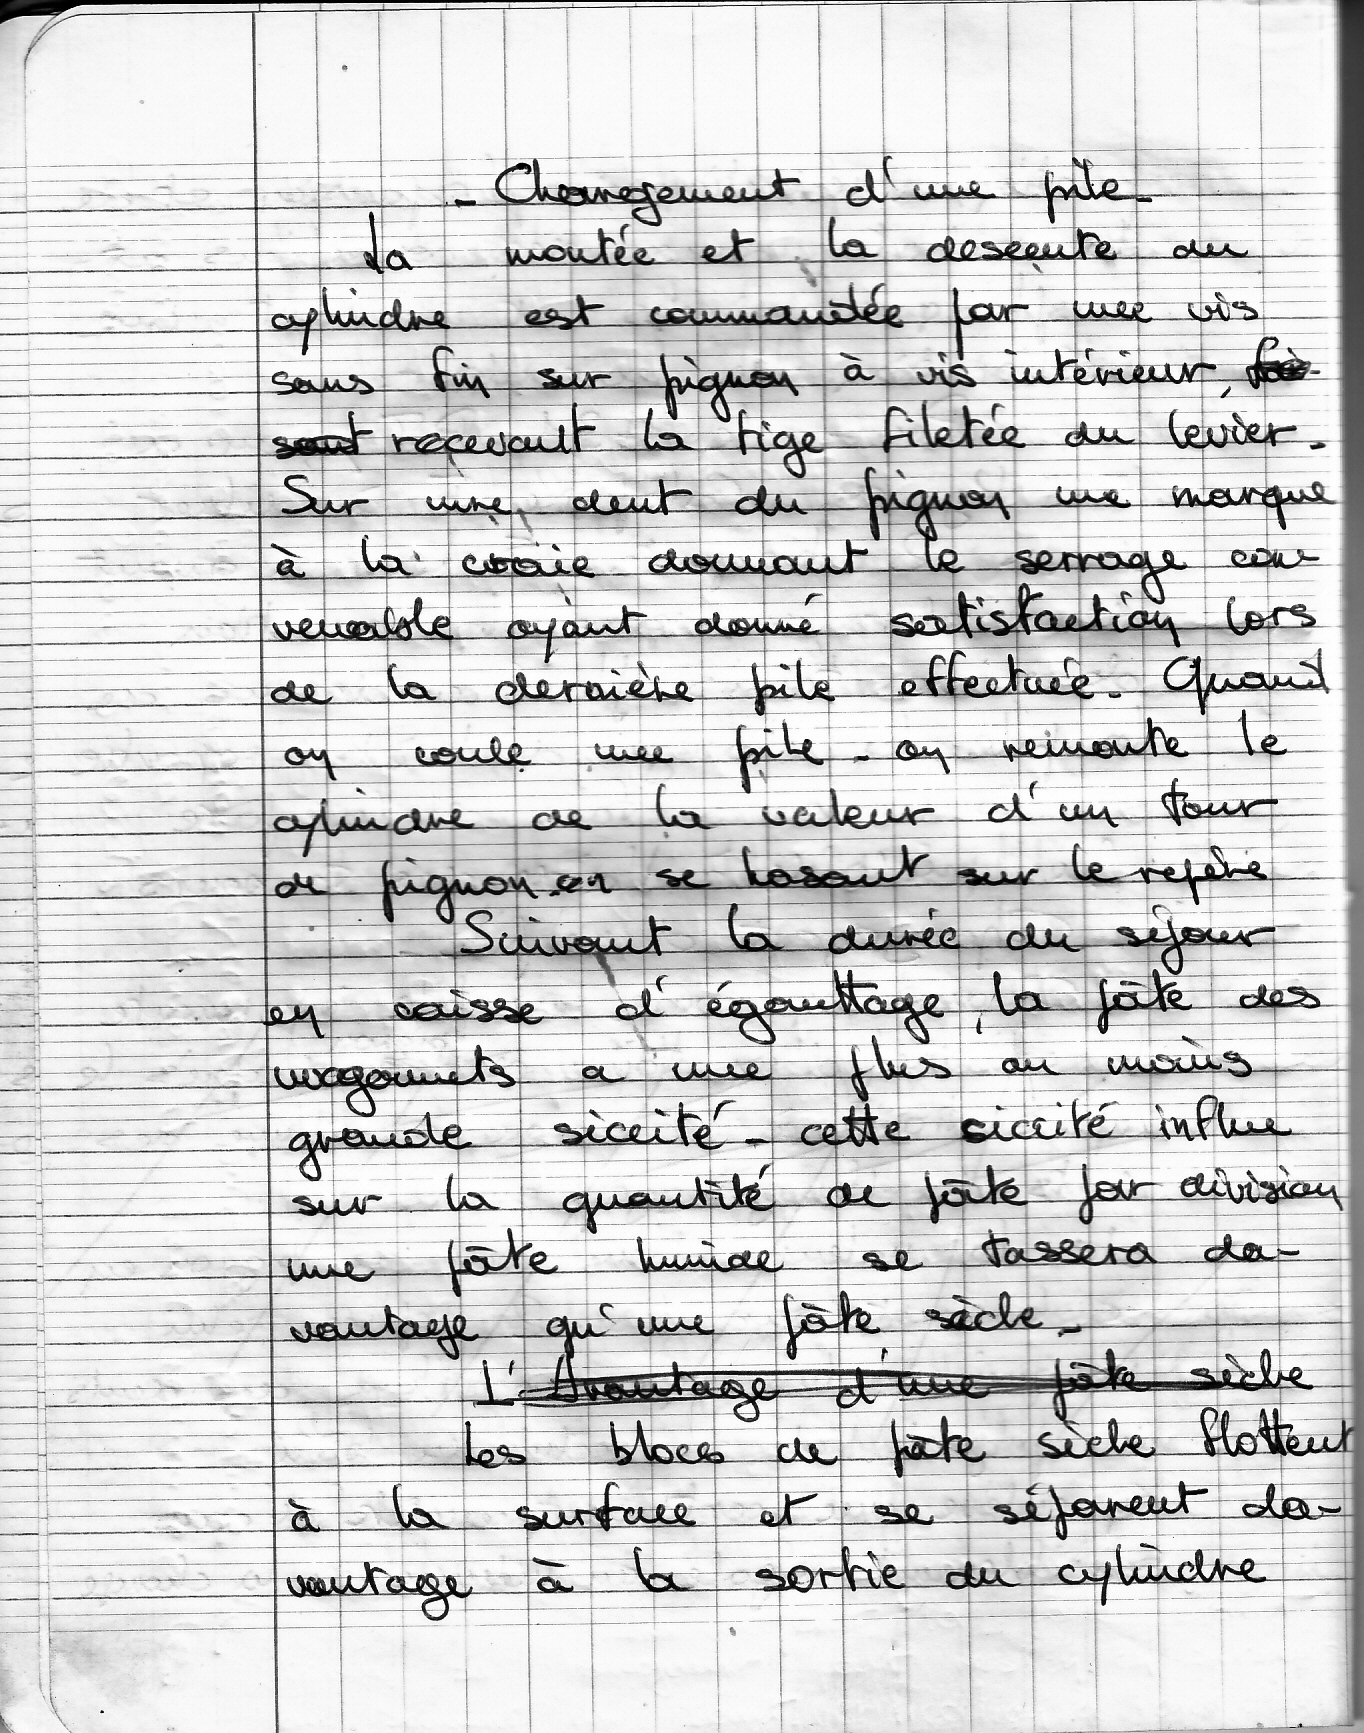 - Changement d'une pile -
La montée et la descente du
cylindre est commandée par une vis
sans fin sur pignon à vis intérieur,
recevant la tige filetée du levier -
Sur une dent du pignon une marque
à la craie donnant le serrage con-
venable ayant donné satisfaction lors
de la dernière pile effectuée - Quand
on coule une pile - on remonte le
cylindre de la valeur d'un tour
de pignon en se basant sur le repère
Suivant la durée du séjour
en caisse d'égouttage, la pâte des
wagonnets a une plus ou moins
grande siccité - cette siccité influe
sur la quantité de pâte par division
une pâte humide se tassera da-
vantage qu'une pâte sèche -
L'Avantage d'une pâte sèche
Les blocs de pâte sèche flottent
à la surface et se séparent da-
vantage à la sortie du cylindre